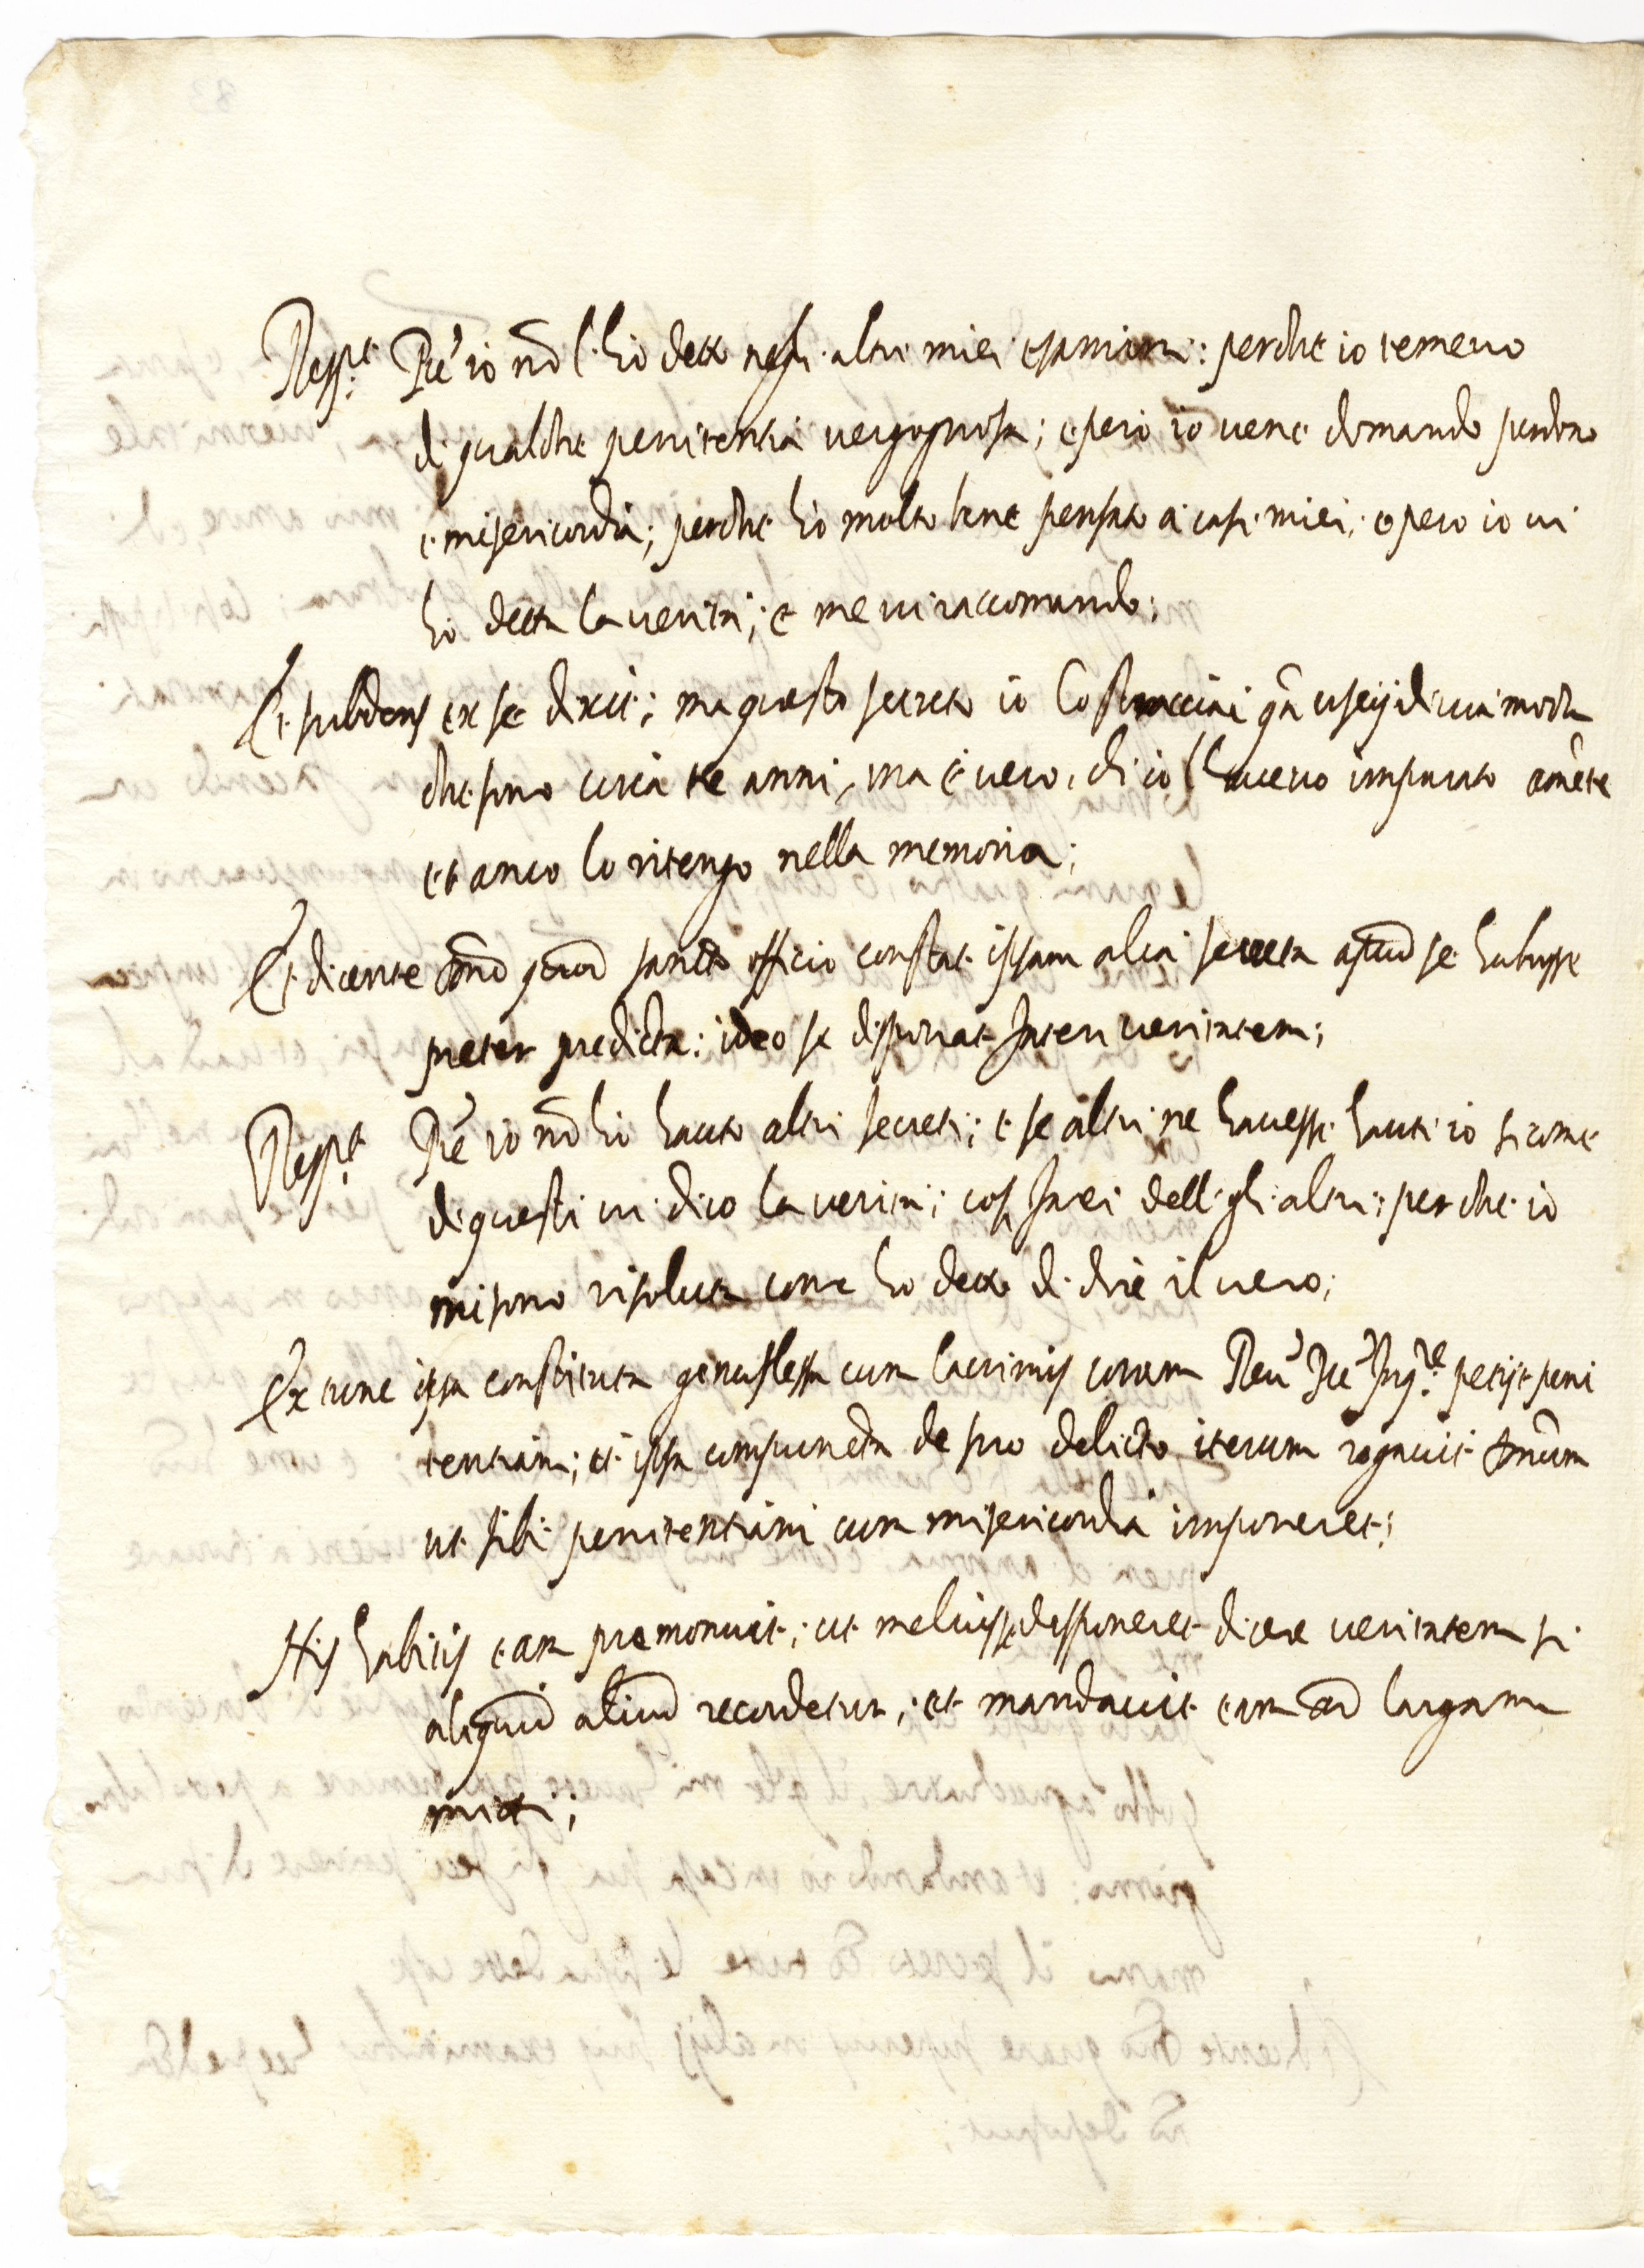 Resp.t Pre io nō l'hò detto negli altri miei esamini: perche io temevo
di qualche penitentia vergognosa; e però io vene domando perdono
e misericordia; perche hò molto bene pensato a' casi miei; e pero io vi
hò detta la verità; e me vi raccomando;
Et subdens ex se dixit; ma questo secreto io lo stracciai qn̄
che sono circa tre anni, ma è vero, ch'io l'havevo imparato amēte
et anco lo ritengo nella memoria;
Et dicente Dnō quod sancto officio constat ipsam alia secreta apud se habuisse
preter predicta: ideo se disponat fateri veritatem;
Resp.t Pre io nō hò hauto altri secreti; e se altri ne havessi hauti io si come
di questi vi dico la verità; così farei dell'gli altri; perche io
mi sono risoluta come hò detto di dire il vero;
Ex tunc ipsa constituta genuflessa cum lacrimis coram Reu' Pre' Inq.re petijt peni
tentiam; et ipsa compuncta de suo delicto iterum rogavit Dnūm
ut sibi penitentiam cum misericordia imponeret;
His habitis eam premonuit; ut melius se disponeret dicere veritatem si
aliquid aliud recordetur; et mandavit eam ad largam
mitti;